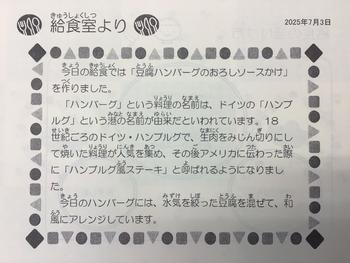 給食室より
2025年7月3日
今日の給食では「豆腐ハンバーグのおろしソースかけ」
を作りました。
「ハンバーグ」という料理の名前は、ドイツの「ハンブ
ルグ」という港の名前が由来だといわれています。18
世紀ごろのドイツ・ハンブルグで、生肉をみじん切りにし
て焼いた料理が人気を集め、その後アメリカに伝わった際
に「ハンブルグ風ステーキ」と呼ばれるようになりまし
た。
今日のハンバーグには、水気を絞った豆腐を混ぜて、和
風にアレンジしています。